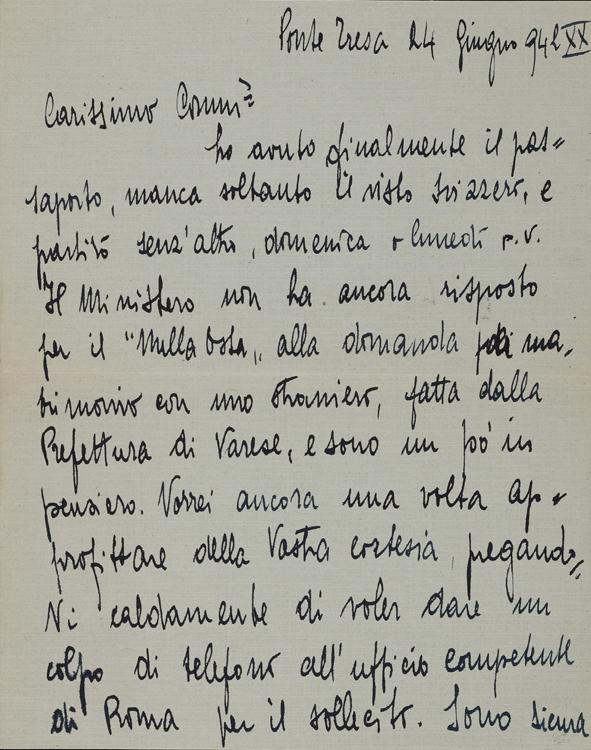 Ponte Tresa 24 Giugno 942 XX
Carissimo Comm=
ho avuto finalmente il pas=
saporto, manca soltanto il visto svizzero, e
partirò senz'altro, domenica o lunedì p.v.
Il Ministero non ha ancora risposto
per il "Nulla Osta„ alla domanda di ma=
trimonio con uno straniero, fatta dalla
Prefettura di Varese, e sono un pò in
pensiero. Vorrei ancora una volta ap=
profittare della Vostra cortesia, pregando=
Vi caldamente di voler dare un
colpo di telefono all'ufficio competente
di Roma per il sollecito. Sono sicura